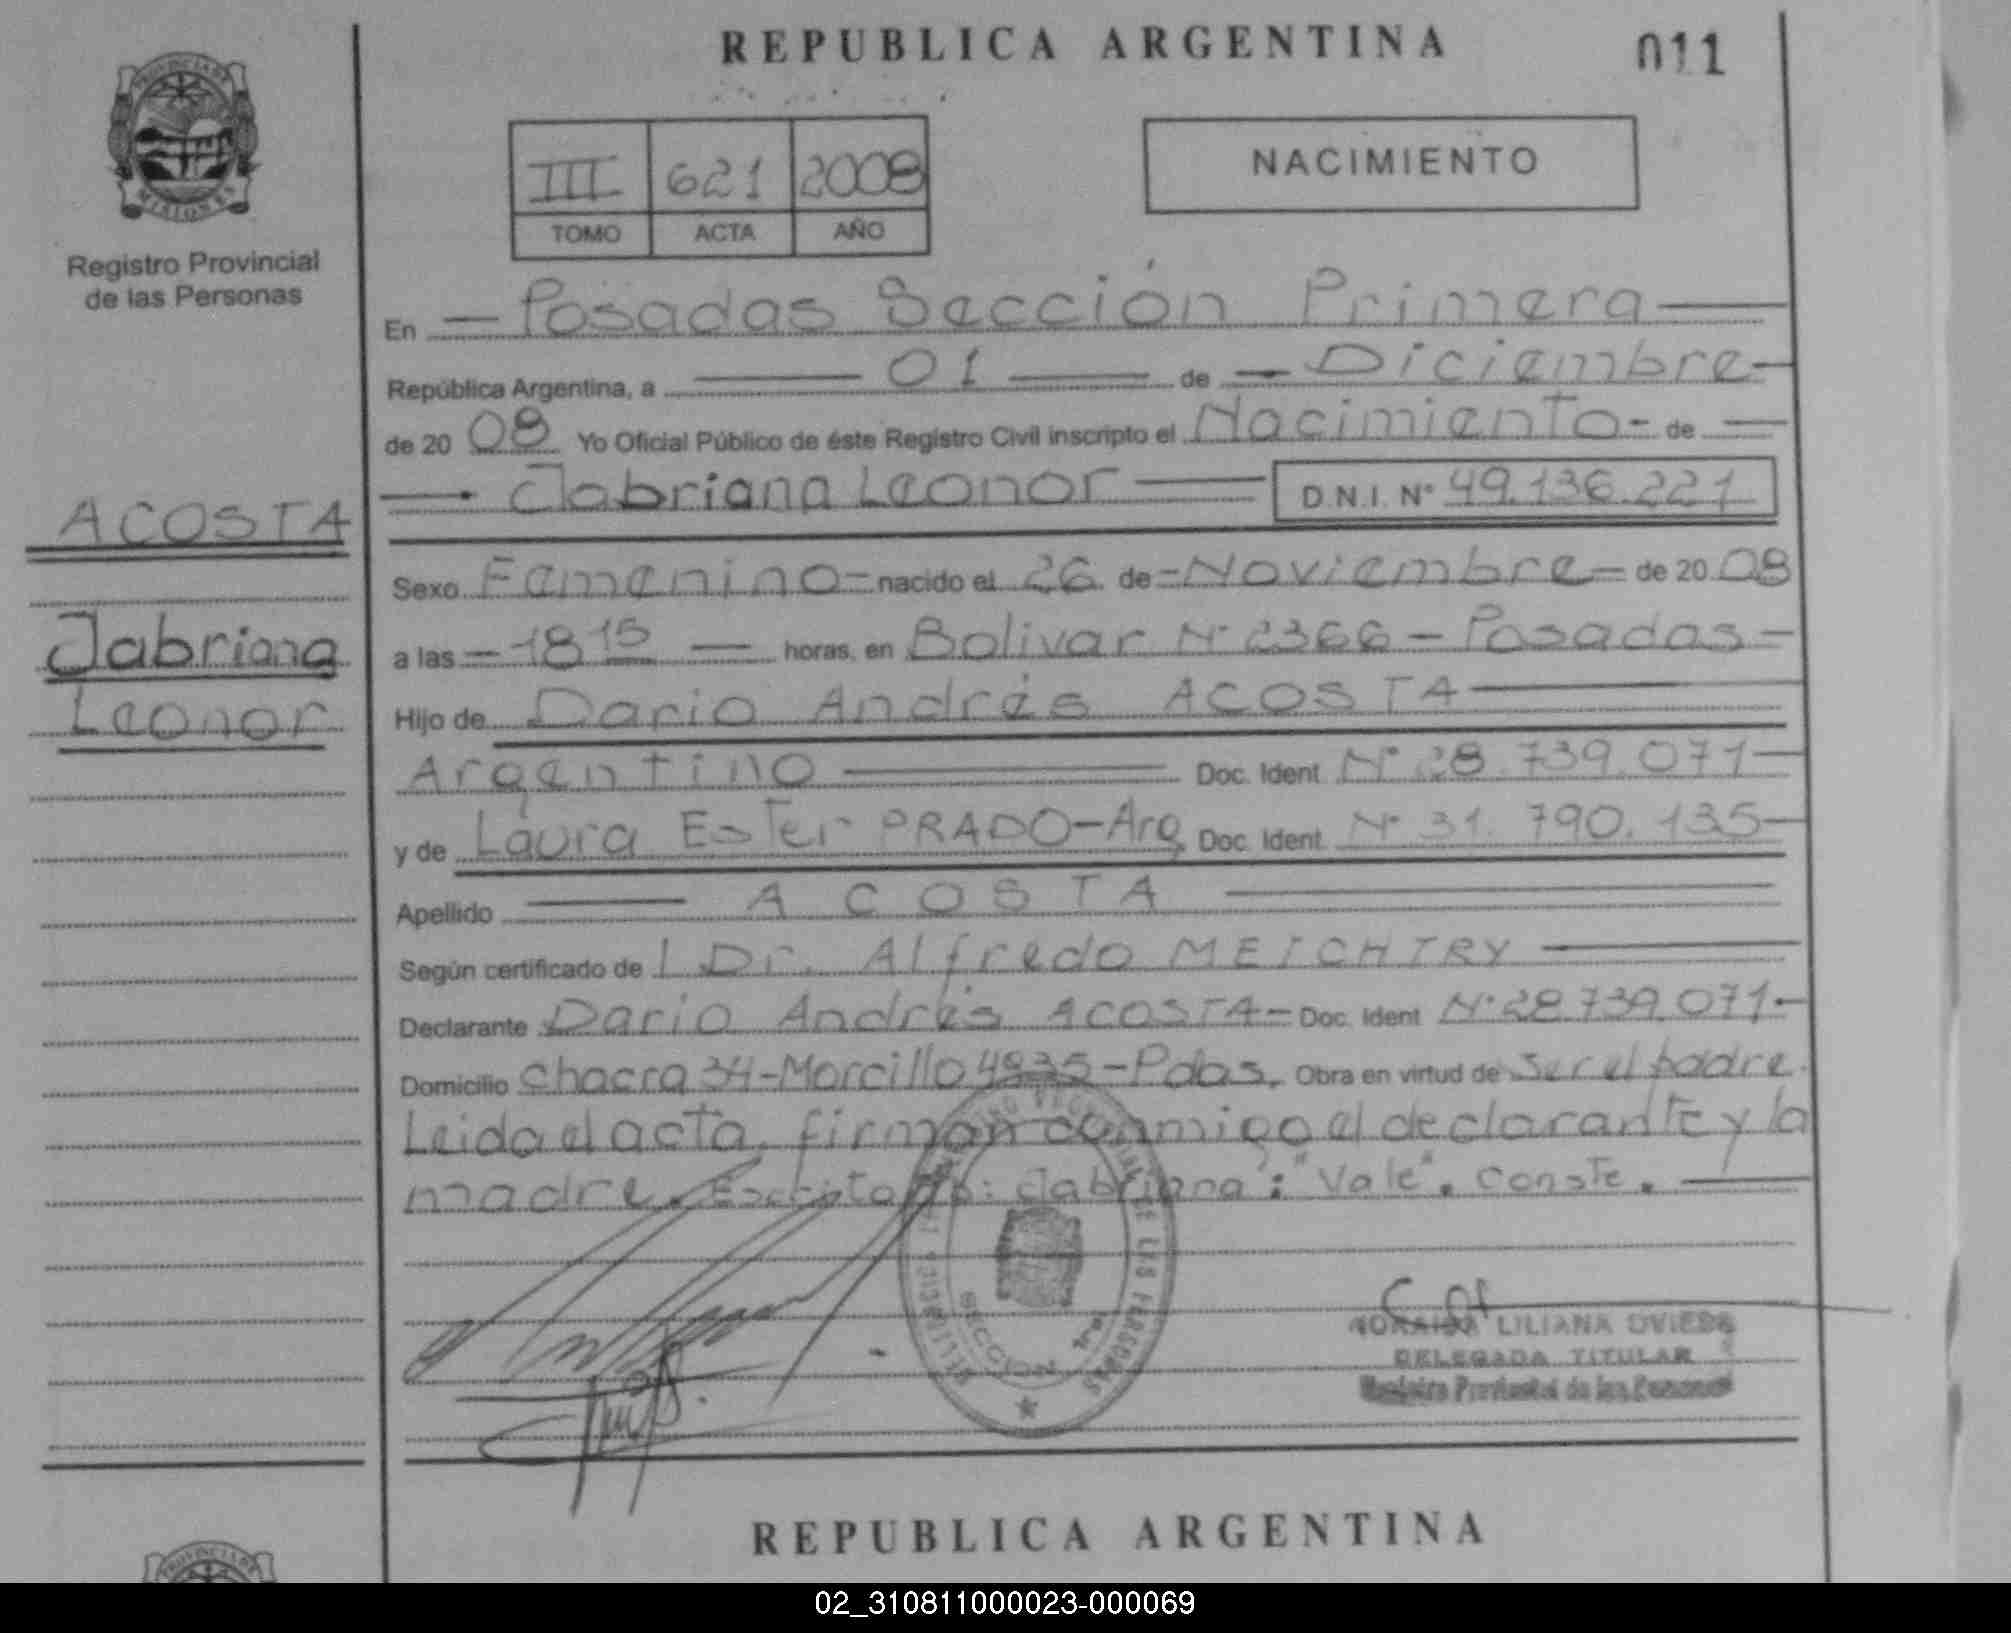 REPUBLICA ARGENTINA
011
PROVINCIA DE
MISIONES
Registro Provincial
de las Personas
III 621 2008
TOMO ACTA AÑO
NACIMIENTO
En Posadas Sección Primera
República Argentina, a 01 de Diciembre
de 20 08 Yo Oficial Público de éste Registro Civil inscripto el Nacimiento de
Jabriana Leonor D.N.I. Nº 49.136.221
ACOSTA
Jabriana
Leonor
Sexo Femenino nacido el 26 de Noviembre de 20 08
a las 18 15 horas, en Bolivar Nº 2366 - Posadas
Hijo de Dario Andrés ACOSTA
Argentino Doc. Ident. Nº 28.739.071
y de Laura Ester PRADO-Arg Doc. Ident. Nº 31.790.135
Apellido ACOSTA
Según certificado de l Dr. Alfredo MEICHTRY
Declarante Dario Andrés ACOSTA Doc. Ident Nº 28.739.071
Domicilio Chacra 34-Morcillo 4935-Pdas. Obra en virtud de ser el padre.
Leida el acta, firman conmigo el declarante y la
madre. Jabriana: "Vale". Conste.
SECCION
LILIANA OVIEDO
DELEGADA TITULAR
Registro Provincial de las Personas
REPUBLICA ARGENTINA
PROVINCIA DE
02_310811000023-000069